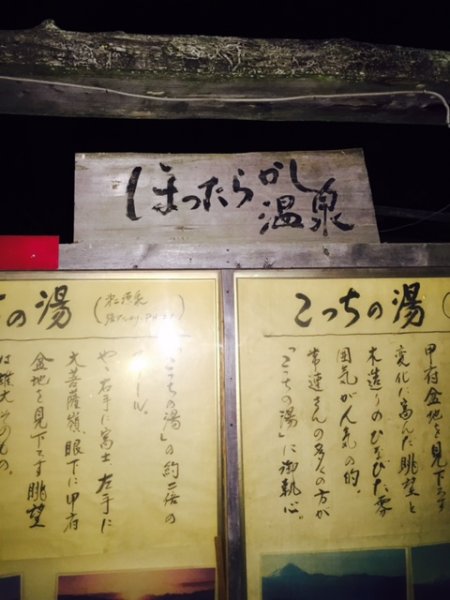 ほったらかし
温泉
こっちの湯
甲府盆地を見下ろす
変化に富んだ眺望と
木造りのひなびた雰
囲気が人気の的。
常連さんの多くの方が
「こっちの湯」に御執心。
の湯
「こっちの湯」の約二倍の
ール。
や、右手に富士、左手に
大菩薩嶺、眼下に甲府
盆地を見下ろす眺望
は雄大そのもの。